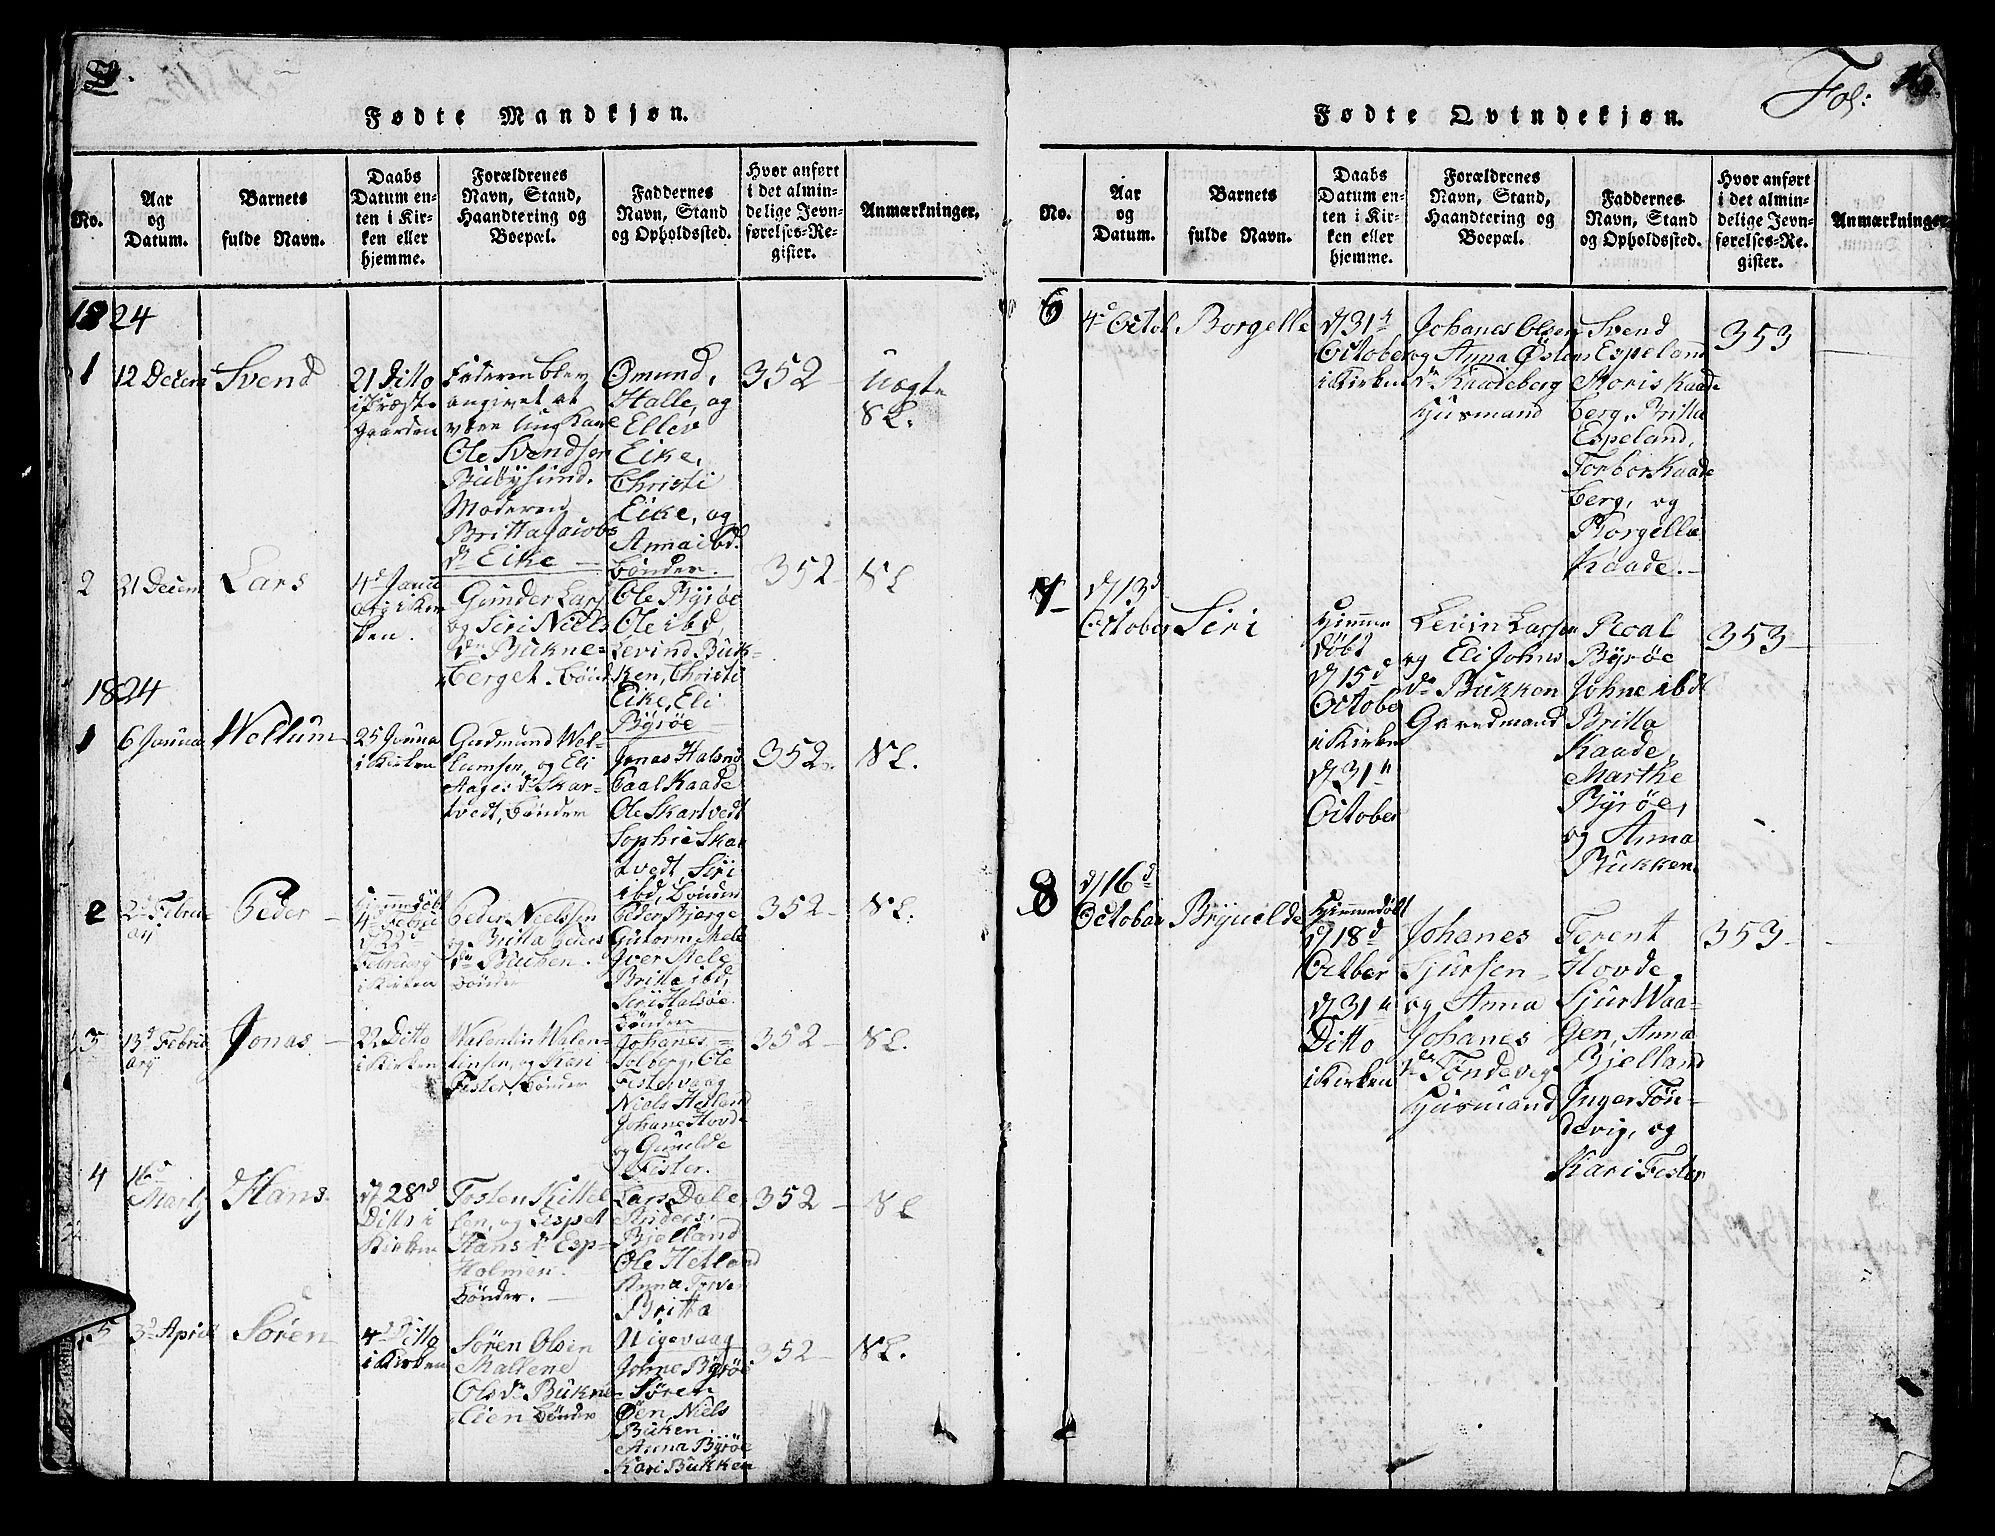 Fol: 16.
Fødte Mandkjøn.
No.
Aar og Datum.
Barnets fulde Navn.
Daabs Datum enten i Kirken eller hjemme.
Forældrenes Navn, Stand, Haandtering og Boepæl.
Faddernes Navn, Stand og Opholdssted.
Hvor anført i det almindelige Jevnførelses-Register.
Anmærkninger.
1824
1 12 Decem Svend
21 Ditto
i Præste
Gaarden
Faderen blev
angivet at
være Ung Karl
Ole Svendsen
Bubøysund.
Moderen
Britta Jacobs
dr Eike —
Omund,
Halle, og
Ellev
Eike,
Christi
Eike, og
Anna ibd.
bönder.
352 —
Uægte
NL.
2 21 Decem Lars
4d Janu
ary i Kir
ken.
Gunder Lars
og Siri Niels
dr Bukne=
berget. bönd
Ole Byrøe
Ole ibd,
Levind Buk-
ken, Christi
Eike, Eli
Byrøe —
352 — NL
1824
1 6 Janua Wellum
25 Janua
i Kirken
Gudmund Wel-
lumsen, og Eli
Aages dr Skar-
tvedt, bönder
Jonas Halsnö
Paal Kaade
Ole Skartvedt
Sophie Skar
tvedt, Siri
ibd, bönder
352. NL.
2 2d Febru
ary
Peder —
Hjemmedöbt
4d Febru
d 22d
February
i Kirken
Peder Nielssen
og Britta Peders
dr Bukken.
bönder
Peder Bjerge
Gutorm Mele
Iver Mele
Britta ibd,
Siri Halsøe.
bönder
352 — NL.
3 13d Febru
ary
Jonas —
22 Ditto
i Kirken
Walentin Walen-
tinsen, og Kari
Fister, bönder
Johanes
Solberg, Ole
Fistervaag
Niels Hetland
Johane Hovde
og Gunilde
Fister.
352 — NL.
4 16d
Marty
Hans.
d 28d
Ditto i
Kirken
Tosten Kittel
sen, og Lispet
Hans dr Esp=
Holmen.
bönder. —
Lars Dale
Anders
Bjelland
Ole Hetland
Anna
Britta
352 — NL
5 3d April Sören
4d Ditto
i Kirken
Sören Olsen
Mallene
Ols dr Bukne=
lien bönder
Wigevaag
Johne Byrøe
Sören
Øen, Niels
Buken.
Anna Byröe
Kari Bukken
352 — NL.
Fødte Qvindekjøn.
No.
Aar og Datum.
Barnets fulde Navn.
Daabs Datum enten i Kirken eller hjemme.
Forældrenes Navn, Stand, Haandtering og Boepæl.
Faddernes Navn, Stand og Opholdssted.
Hvor anført i det almindelige Jevnførelses-Register.
Anmærkninger.
6 4d Octob Borgelle
d 31d
October
i Kirken
Johanes Olsen
og Anna Østens
dr Kaadeberg
Huusmand
Svend
Espeland
Moris Kaade
berg, Britta
Espeland,
Torbor Kaade
berg, og
Borgella
Kaade. —
353 —
7 d 13d
October
Siri
Hjemme
döbt
d 15d
October
i Kirken
d 31d
October
Levin Larsen
og Eli Johns
dr Bukken
Gaardmand
Roal
Byrøe
Johne ibd
Britta
Kaade,
Marthe
Byröe,
og Anna
Bukken
353 —
8 d 16d
October
Brynelde
Hjemmedöbt
d 18d
Octber
d 31d
Ditto
i Kirken
Johanes
Sjursen
og Anna
Johanes
dr Töndevig
Huusmand
Terent
Hovde,
Sjur Waa-
gen, Anna
Bjelland
Inger Tön-
devig, og
Kari Fister
353 —